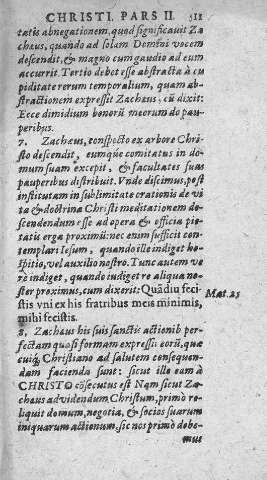 CHRISTI. PARS II. 511
tatis abnegationem, quod significauit Za
cheus, quando ad solam Domini vocem
descendit, & magno cum gaudio ad eum
accurrit. Tertio debet esse abstracta à cu
piditate rerum temporalium, quam ab-
stractionem expressit Zacheus, cū dixit:
Ecce dimidium bonorū meorum do pau
peribus.
7. Zacheus, conspecto ex arbore Chri-
sto descendit, eumque comitatus in do-
mum suam excepit, & facultates suas
pauperibus distribuit. Vnde discimus, post
institutam in sublimitate orationis de vi
ta & doctrina Christi meditationem de-
scendendum esse ad opera & officia pie-
tatis erga proximū: nec enim sufficit con-
templari Iesum, quando ille indiget ho-
spitio, vel auxilio nostro. Tunc autem ve
rè indiget, quando indiget re aliqua no-
ster proximus, cum dixerit: Quādiu feci
stis vni ex his fratribus meis minimis,
mihi fecistis.
Mat. 25
8. Zachæus his suis sanctis actionib. per-
fectam quasi formam expressit eorū, quæ
cuiq; Christiano ad salutem consequen-
dam facienda sunt: sicut ille eam à
CHRISTO cōsecutus est Nam sicut Za
chæus ad videndum Christum, primò re-
liquit domum, negotia, & socios suarum
iniquarum actionum. sic nos primò debe-
mus